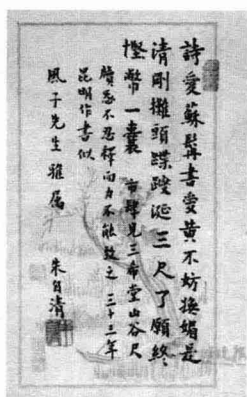 詩愛蘇髯書愛黃不妨撫媚是
清剛攤頭蹀躞涎三尺了願終
慳幣一囊 市肆見三希堂山谷尺
牘愛不忍釋而力不能致之 三十三年
昆明作書似
風子先生雅属 朱自清